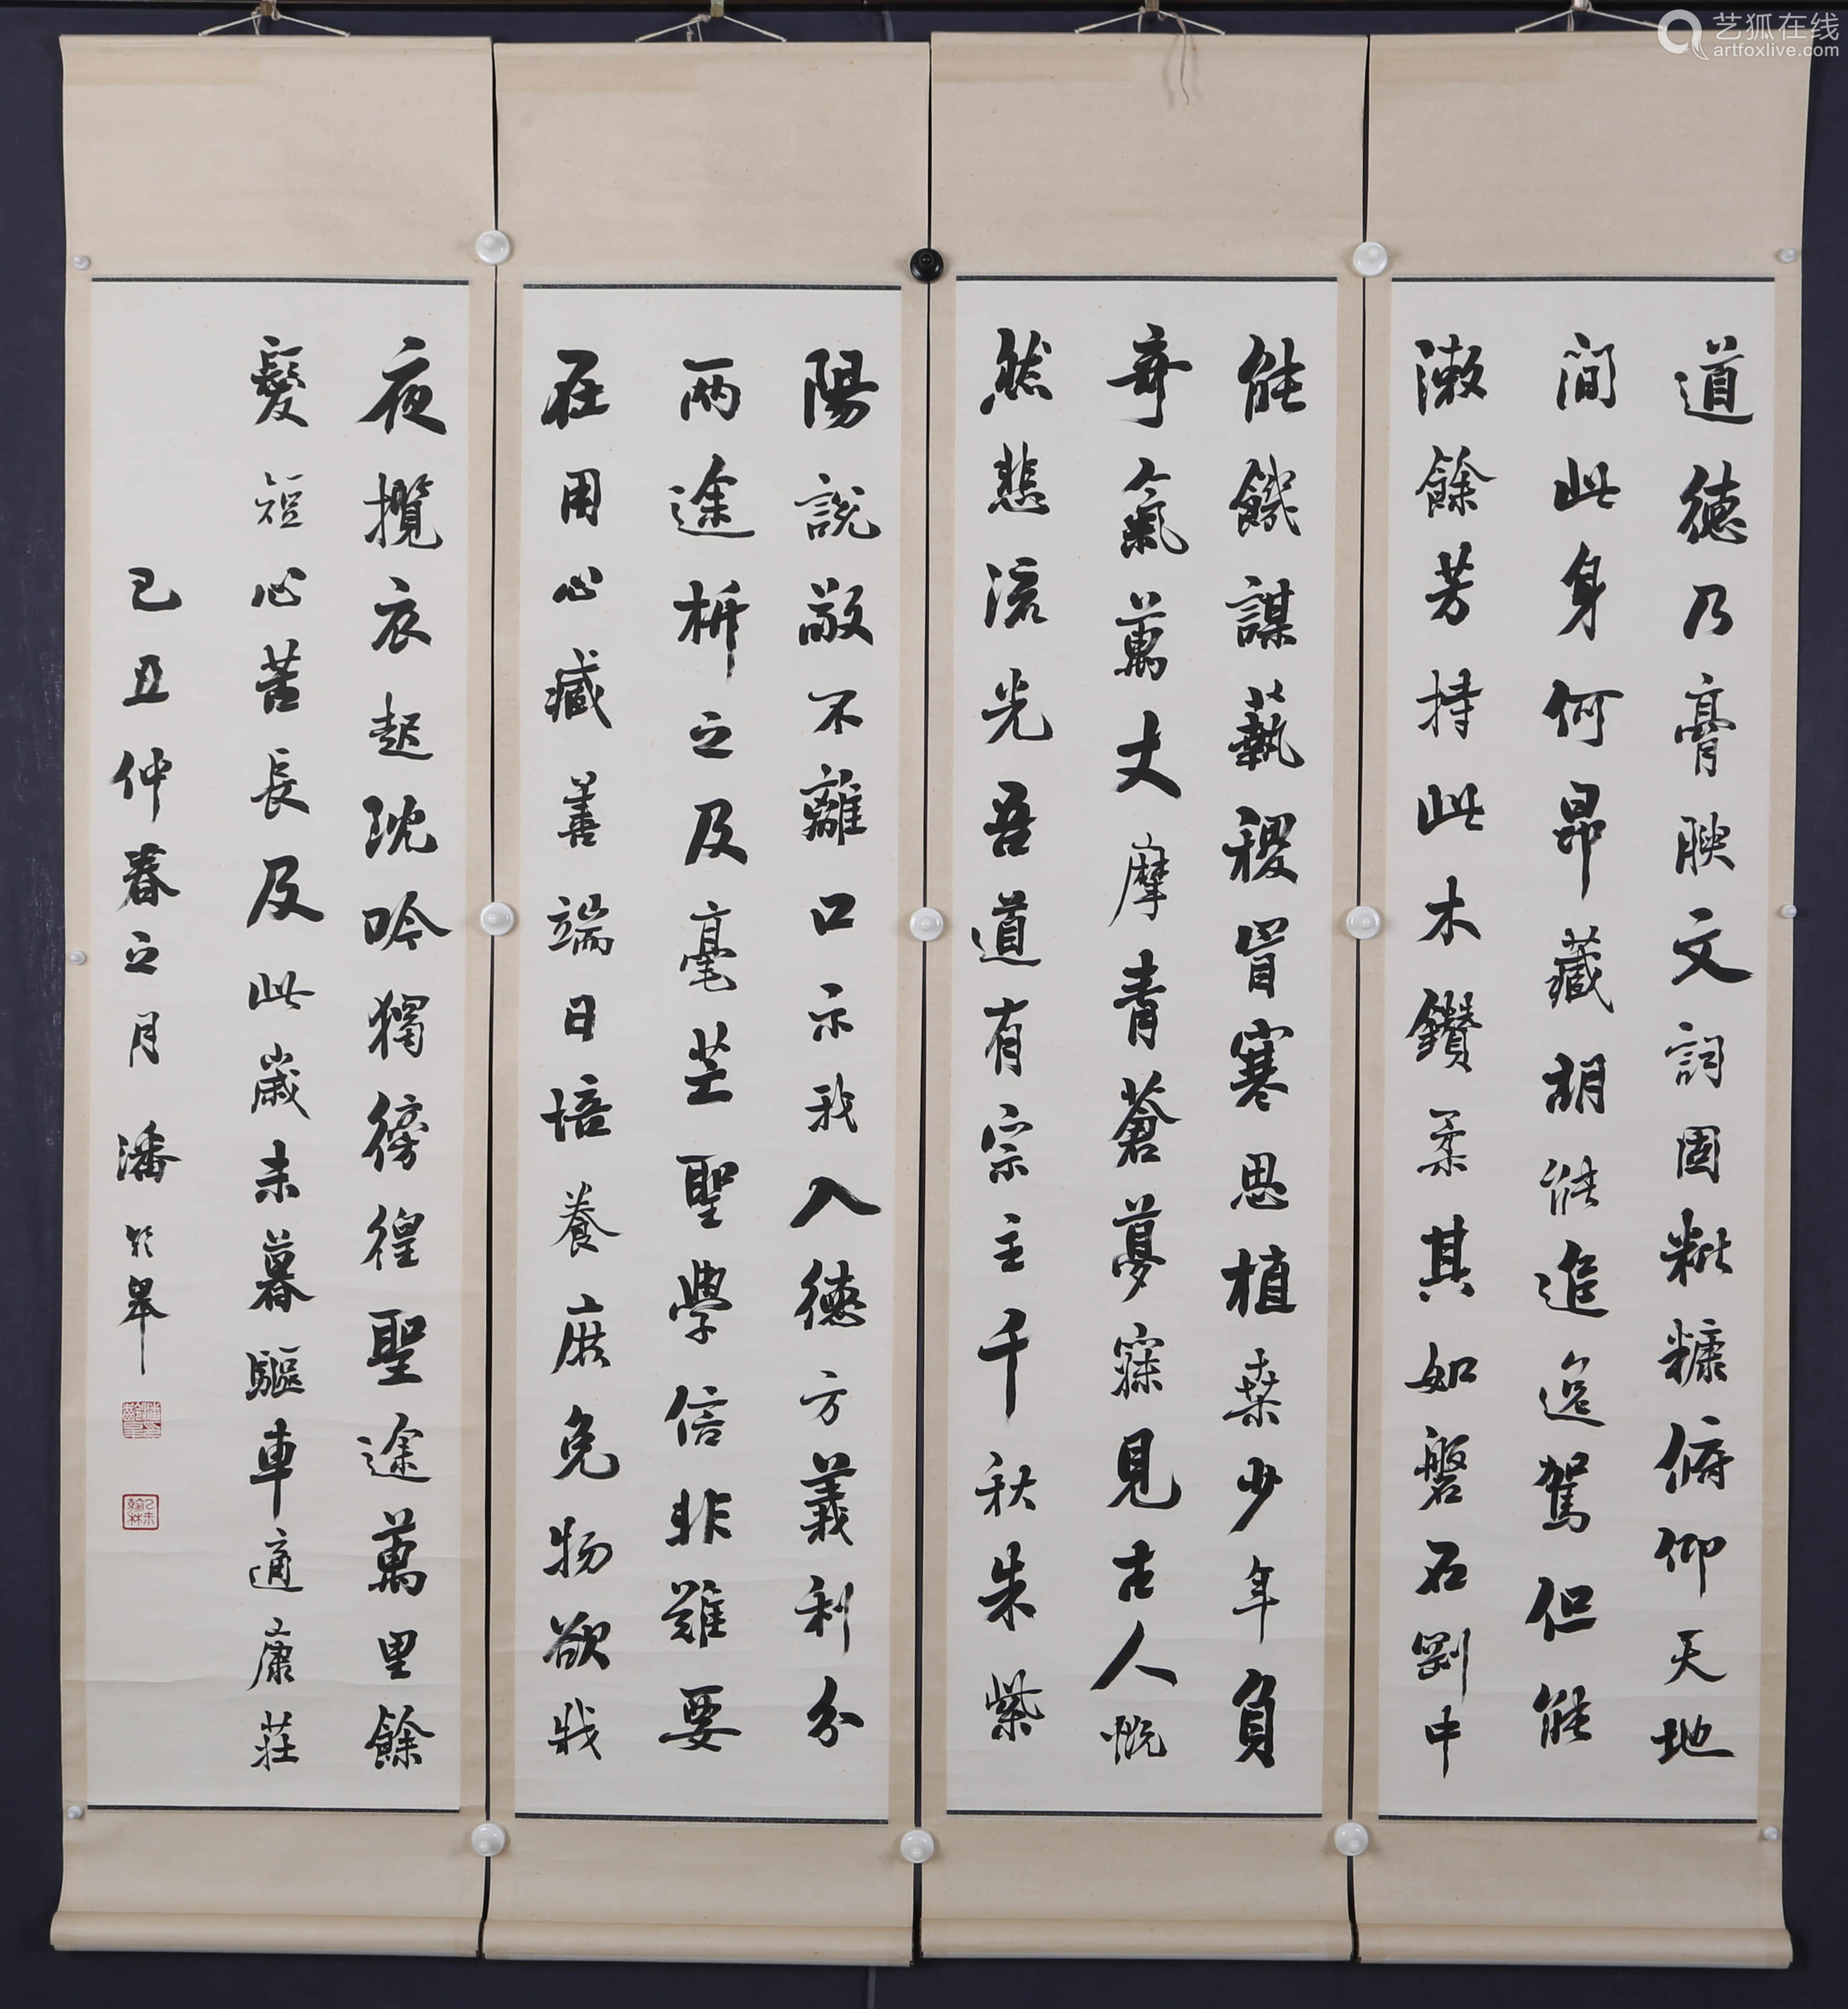 艺狐在线
artfoxlive.com
道德乃膏腴文詞固粃糠俯仰天地
間此身何昂藏胡能追逸駕但能
漱餘芳持此木鑽柔其如磐石剛中
能饑謀藝稷冒寒思植桑少年負
奇氣萬丈摩青蒼夢寐見古人慨
然悲流光吾道有宗主千秋朱紫
陽說敬不離口示我入德方義利分
兩途析之及毫芒聖學信非難要
在用心臧善端日培養庶免物欲戕
夜攬衣起沈吟獨徬徨聖途萬里餘
髮短心苦長及此歲未暮驅車適康莊
己丑仲春之月潘齡皋
潘齡皋印
乙未翰林